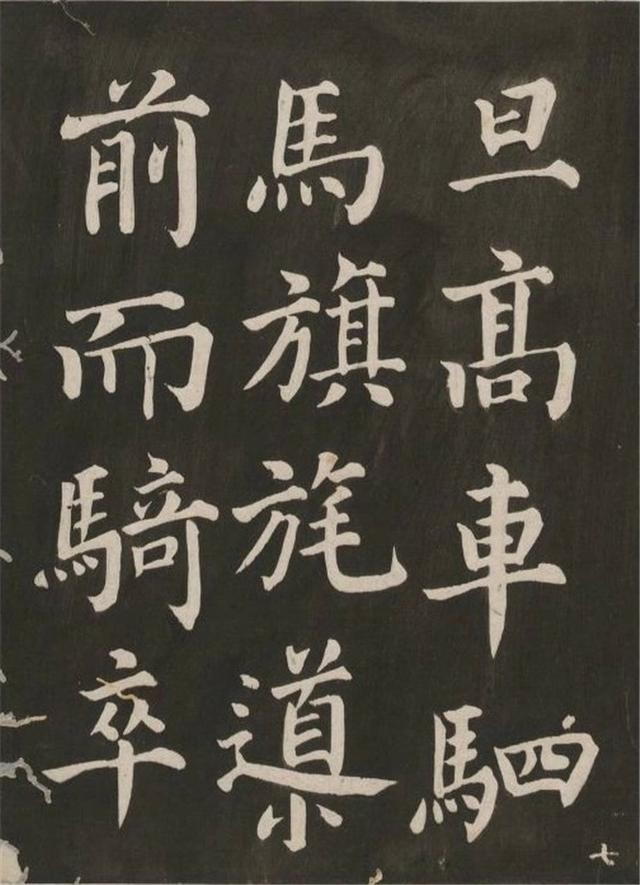 旦髙車駟
馬旗旄導
前而騎卒
七